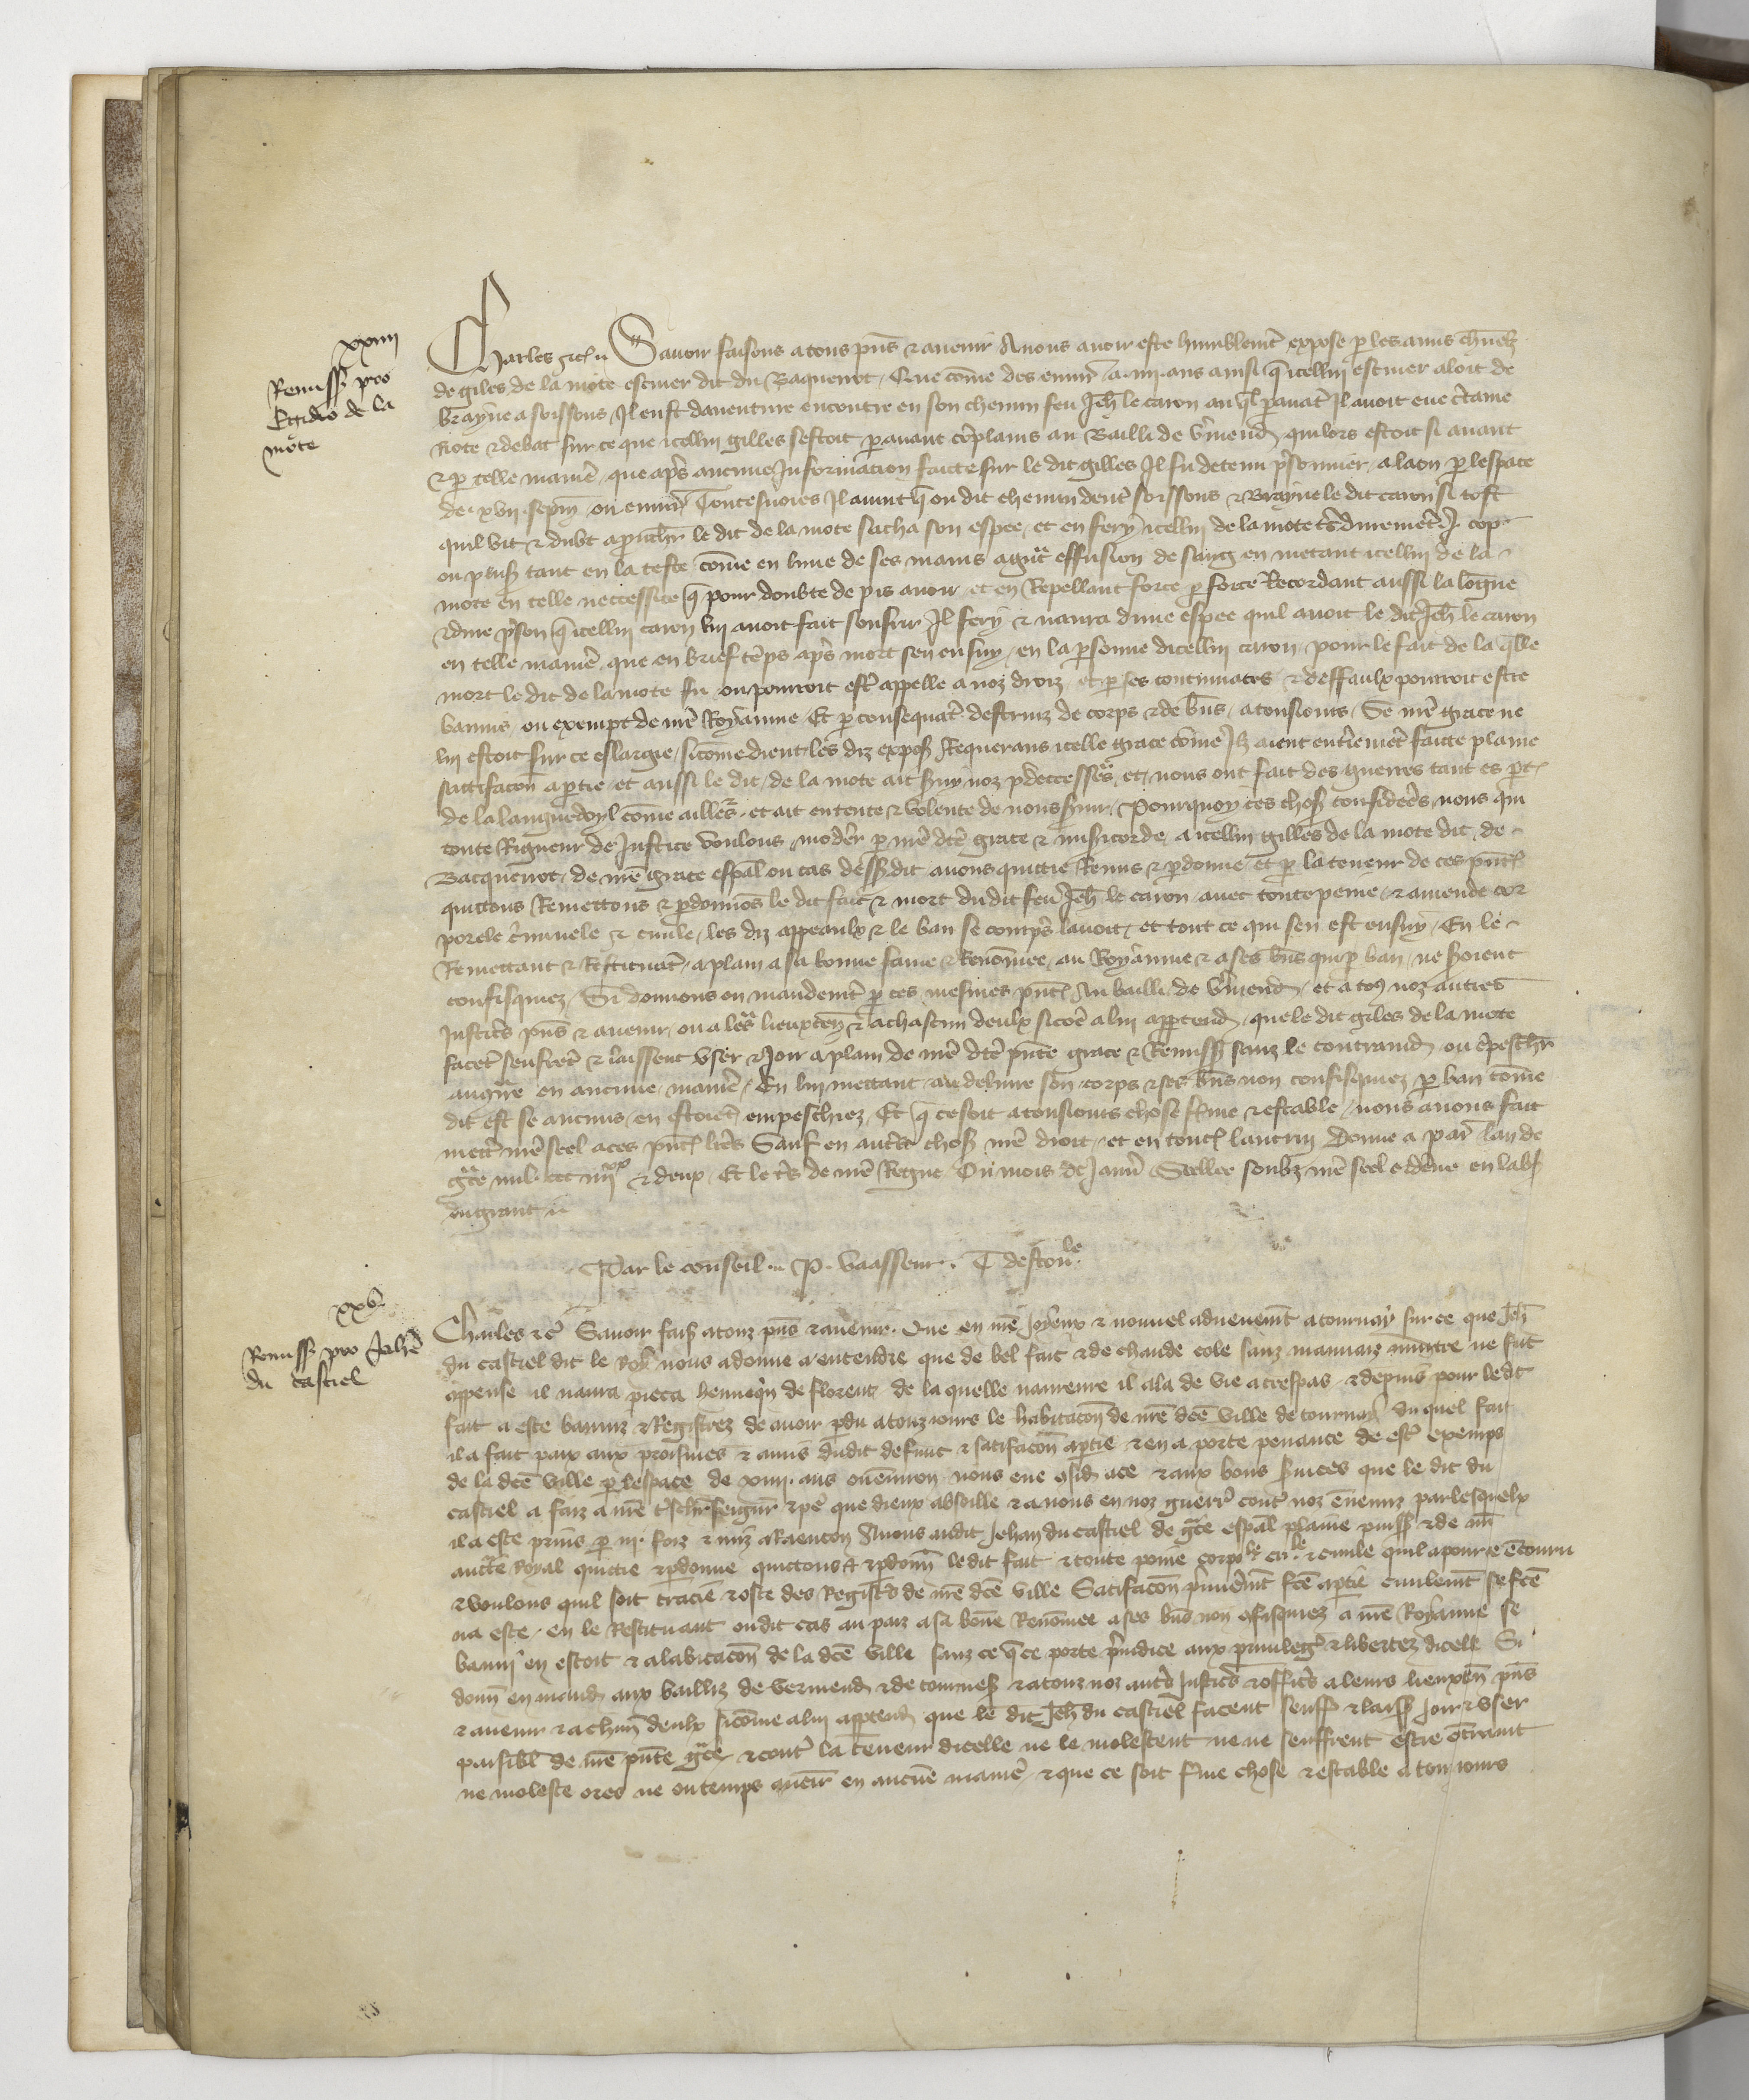 xxiiii
Remiss pro
Egidio de la
mote
Charles etc. Savoir faisons a tous pns et avenir A nous avoir este humblemt expose p les amis charnelz
de giles de la mote escuier dit du Baquenot, Que come des environ a .iiii. ans ainsi q icellui escuier aloit de
brayne a soissons Il eust daventure encontre en son chemin feu Jeh le caron au ql pavant Il avoit eue ctaine
Riote et debat sur ce que icellui gilles sestoit pavant coplains au Bailli de Vmend qui lors estoit si avant
et p telle maniere que apres aucune Informacion faicte sur le dit gilles Il fu detenu psonnier a laon p lespace
de .xvii. sepm ou environ Toutesvoies Il avint q ou dit chemin dentre soissons et Brayne le dit caron si tost
quil vit et dubt apruchr le dit de la mote sacha son espee, et en fery icellui de la mote tres duremet .I. cop
ou pluss tant en la teste come en lune de ses mains a gnt effusion de sang en metant icellui de la
mote en telle neccessite q pour doubte de pis avoir et en Repellant force p force Recordant aussi la longue
et dure pson q icellui caron lui avoit fait soufrir Il fery et navra dune espee quil avoit le dit Jeh le caron
en telle maniere que en brief temps apres mort sen ensuy, en la psonne dicellui caron, pour le fait de la qlle
mort le dit de la mote fu ou pourroit estre appelle a noz droiz et p ses contumaces et deffaulx pourroit estre
bannis ou exempt de nre Royaume Et p consequat destruiz de corps et de bns a tousiours, Se nre grace ne
lui estoit sur ce eslargie, sicome dient les diz expos Requerans icelle grace come Ilz aient entieremet faicte plaine
satisfacon a ptie et aussi le dit de la mote ait svy noz pdecessrs et nous ont fait des guerres tant es pt
de la languedoyl come aillrs et ait entente et volente de nous svir, Pourquoy ces chos considerees nous qui
toute Rigueur de Justice voulons moder p nre dte grace et misicorde a icellui gilles de la mote dit de
Bacquenot, de nre grace espal ou cas dessdit avons quittie Remis et pdonne et p la teneur de ces pnt
quittons Remettons et pdonnons le dit fait et mort du dit feu Jeh le caron, avec toute peine, et amende cor
porele criminele et civile, les diz appeaulx et le ban se comps lavoit, et tout ce qui sen est ensuy, En le
Remettant et Restituat a plain a sa bonne fame et Renomee, au Royaume et a ses bns qui p ban ne seroient
confisquiez, Si donnons en mandemt p ces mesmes pnt Au bailli de Vmend et a to9 noz autres
Justicrs pns et avenir, ou a leurs lieuxten et a chascun deulx sicome a lui apptend, que le dit giles de la mote
facet seufret et laissent user et Joir a plain de nre dte pnte grace et Remiss sanz le contraind ou epeschr
aucre en aucune maniere, En lui mettant au delivre son corps et ses bns non confisquiez p ban come
dit est se aucuns en estoiet empeschiez, Et q ce soit a tousiours chose ferme et estable, nous avons fait
mettre nre seel a ces pnt lres Sauf en autres chos nre droit, et en tout lautruy Donne a par lan de
gce mil ccc iiiixx et deux, Et le tiers de nre Regne Ou mois de Janv Seellee soubz nre seel ordene en labs
du grant
Par le conseil P. Vaasseur. T destouble
xxv
Remiss pro Johe
du castiel
Charles etc. Savoir fais a touz pns et avenir. Que en nre joyeux et nouvel advenemt a tournay sur ce que Jeh
du castiel dit le Rok nous a donne a entendre que de bel fait et de chaude cole sanz mauvaiz nuntre ne fait
appense il navra pieca hennequin de florent de la quelle navreure il ala de vie a trespas et depuis pour ledt
fait a este banniz et Registrez de avoir pdu a touz iours le habitacon de nre dce ville de tournay du quel fait
il a fait paix aux proismes et amis dudit defunt et satisfacon a ptie et en a porte penance de estre exemps
de la dce ville p lespace de xiiii. ans ou environ nous eue gsid a ce et aux bons svices que le dit du
castiel a faiz a nre treschr seigneur et pe que dieux absoille et a nous en noz guerres cont noz ennemiz par lesquelx
il a este prins p iii. foiz et miz a Raencon Avons audit Jehan du castiel de gce espal plaine puiss et de nre
aucte Royal quitie et pdonne quictons et pdonn ledit fait et toute poine corpole crile et civile quil a pour ce encouru
et voulons quil soit tracie et oste des Registrs de nre dce ville Satisfacon pmiermt fce a ptie civilemt se fce
na este, en le Restituant ou dit cas au paiz a sa bone Renomee a ses bns non gfisquiez a nre Royaume se
banni en estoit et a labitacon de la dce ville sanz ce q ce porte prudice aux privileg et libertez dicelle Si
donn en mand aux bailliz de vermend et de tournes et a touz noz autrs Justicrs et officrs a leurs lieuxten pns
et avenir et a chun deulx sicome a lui apptend que le dit Jeh du castiel facent seuff et laiss joir et user
paisibl de nre pnte gce et cont la teneur dicelle ne le molestent ne ne seuffrent estre otraint
ne moleste ores ne ou temps avenir en aucune maniere et que ce soit fme chose et estable a tou iours